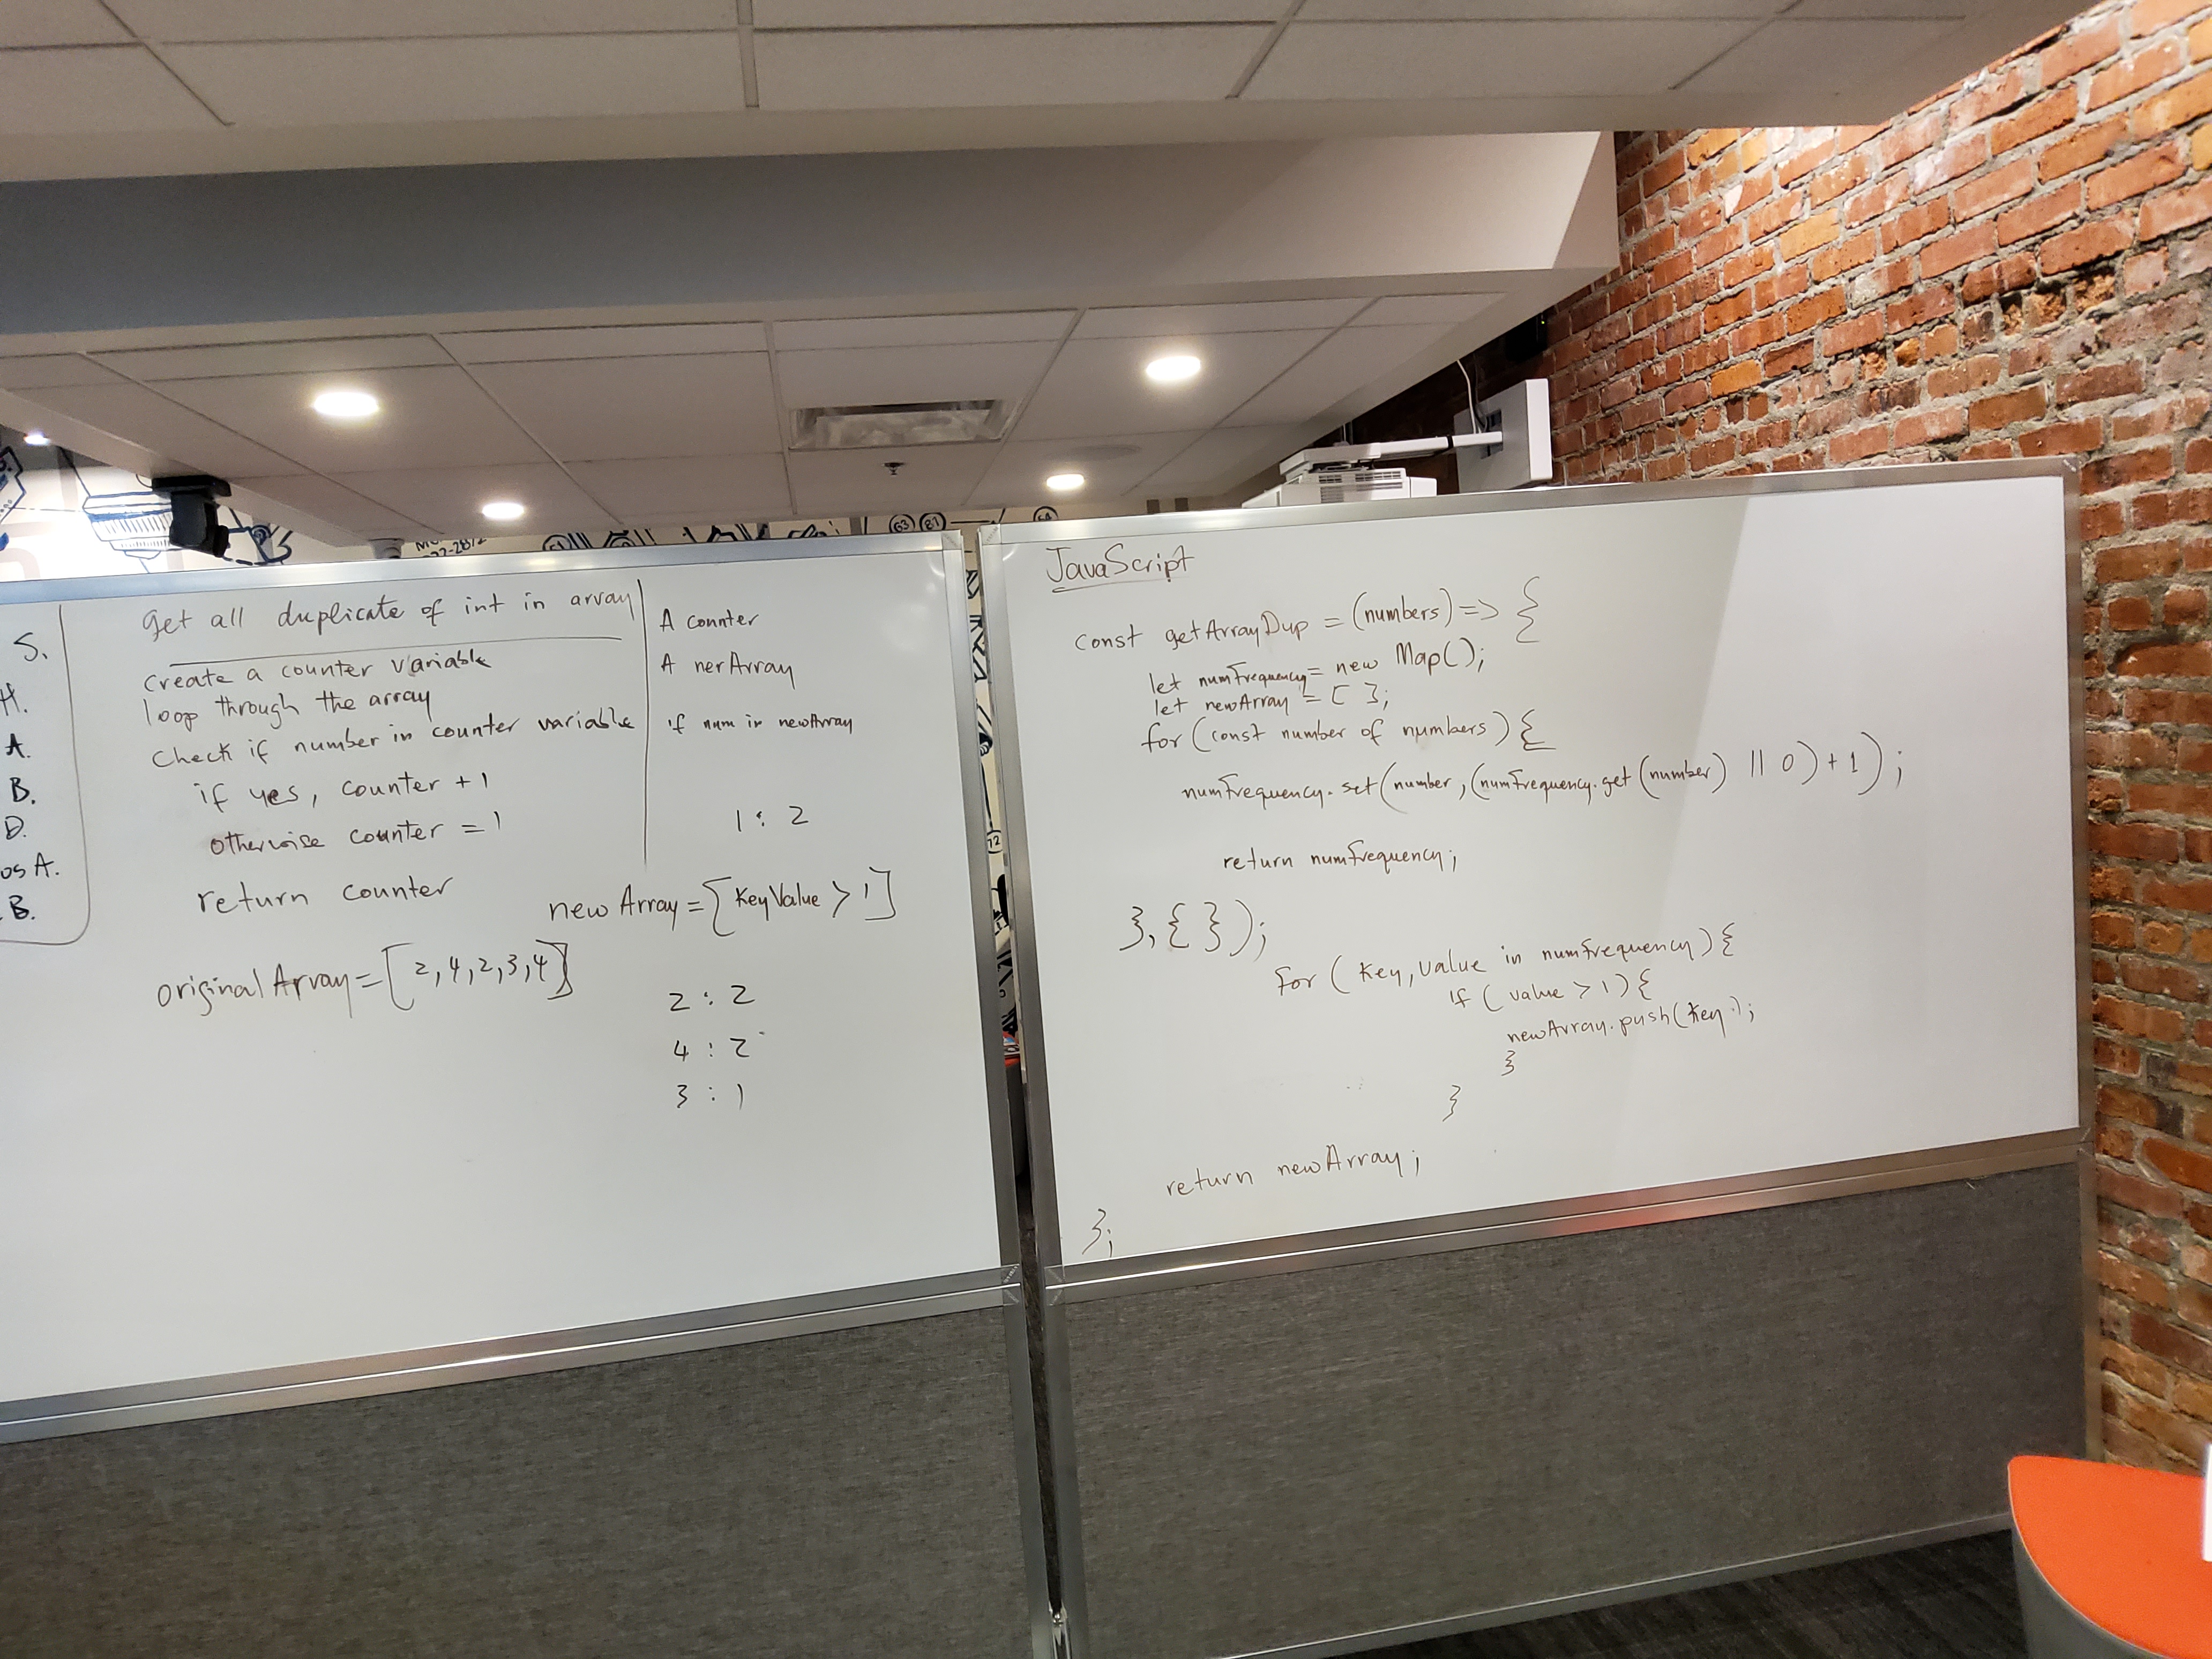 S.
H.
A.
B.
D.
os A.
B.
Get all duplicate of int in array
Create a counter variable
loop through the array
Check if number in counter variable
if yes, counter + 1
otherwise counter = 1
return counter
A counter
A nerArray
if num in newArray
1 : 2
newArray = [KeyValue > 1]
originalArray = [2,4,2,3,4]
2 : 2
4 : 2
3 : 1
JavaScript
const getArrayDup = (numbers) => {
let numFrequency = new Map();
let newArray = [ ];
for (const number of numbers) {
numFrequency.set(number, (numFrequency.get(number) || 0) + 1);
return numFrequency;
}, { });
For (Key, Value in numFrequency) {
if (value > 1) {
newArray.push(Key);
}
}
return newArray;
};
63 81